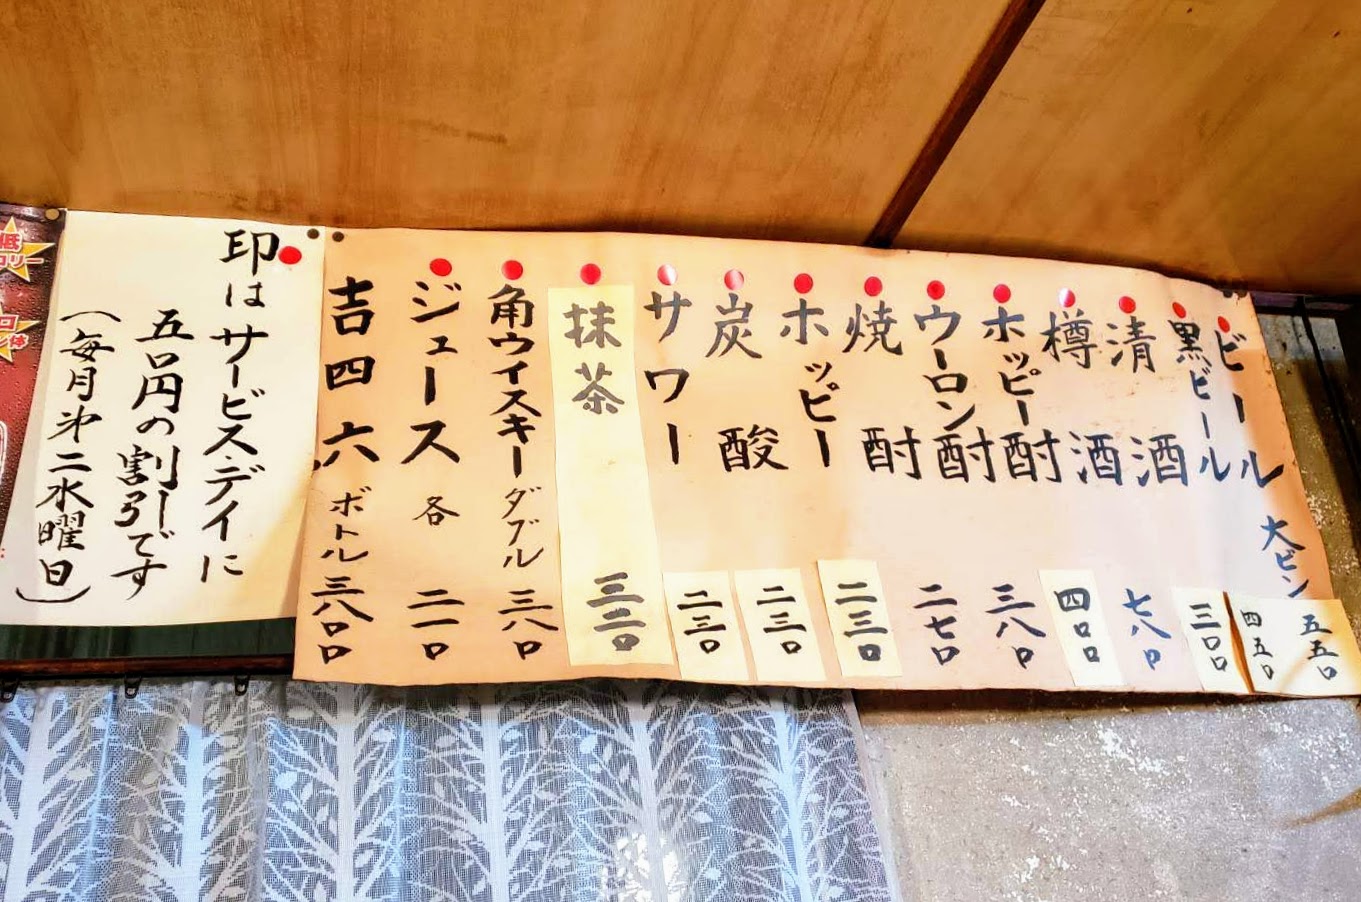 ビール 大ビン 五五〇
四五〇
黒ビール 三〇〇
清酒 七八〇
樽酒 四〇〇
ホッピー酎 三八〇
ウーロン酎 二七〇
焼酎 二三〇
ホッピー
炭酸 二三〇
サワー 二三〇
抹茶 三三〇
角ウイスキーダブル 三八〇
ジュース 各 二一〇
吉四六 ボトル 三八〇〇
印はサービス・デイに
五〇円の割引です
(毎月第二水曜日)